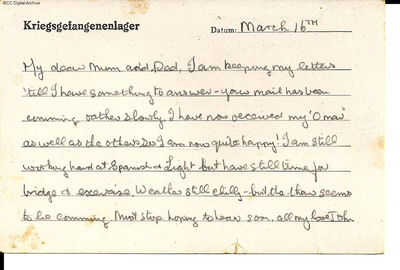 IBCC Digital Archive
Kriegsgefangenenlager Datum: March 16TH
My dear Mum and Dad, I am keeping my letters
'till I have something to answer - your mail has been
comming rather slowly. I have now received my "Omar"
as well as the others so I am now quite happy! I am still
working hard at Spanish & Light but have still time for
bridge & exercise. Weather still chilly - but the thaw seems
to be comming. Must stop hoping to hear soon. all my love John